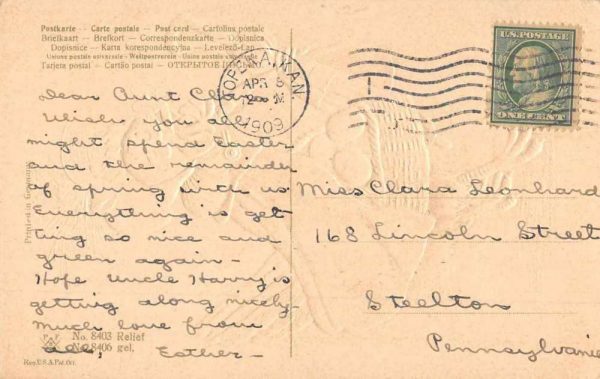 Postkarte - Carte postale - Post card - Cartolina postale
Briefkaart - Brefkort - Correspondenzkarte - Dopisnica
Dopisnice - Karta korespondencyjna - Levelező-Lap
Union postale universelle - Weltpostverein - Union postale universelle
Tarjeta postal - Cartão postal - ОТКРЫТОЕ ПИСЬМО
TOPEKA, KAN.
APR 5
2 M
1909
U.S. POSTAGE
ONE CENT
Dear Aunt Clara
Wish you all
might spend Easter
and the remainder
of spring with us
everything is get
ting so nice and
green again -
Hope Uncle Harry is
getting along nicely.
Much love from
all, Esther -
Miss Clara Leonhard
168 Lincoln Street
Steelton
Pennsylvania
Printed in Germany
No. 8403 Relief
No. 8406 gel.
Reg. U.S.A. Pat. Off.